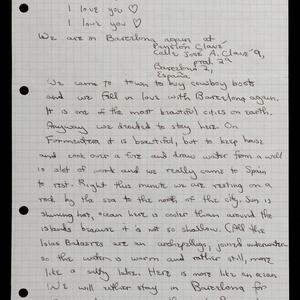 I love you ♡
I love you ♡
We are in Barcelona again at
Pension Clavé
Calle José A. Clavé 9,
pral. 2ª
Barcelona 2,
España.
We came to town to buy cowboy boots
and we fell in love with Barcelona again.
It is one of the most beautiful cities on earth.
Anyway we decided to stay here. On
Formentera it is beautiful, but to keep house
and cook over a fire and draw water from a well
is alot of work and we really came to Spain
to rest. Right this minute we are resting on a
rock by the sea to the north of the city. Sun is
shining hot, ocean here is cooler than around the
islands because it is not so shallow. (All the
Islas Baleares are an archipeligo, joined underwater
so the water is warm and rather still, more
like a salty lake. Here is more like an ocean
We will rather stay in Barcelona for